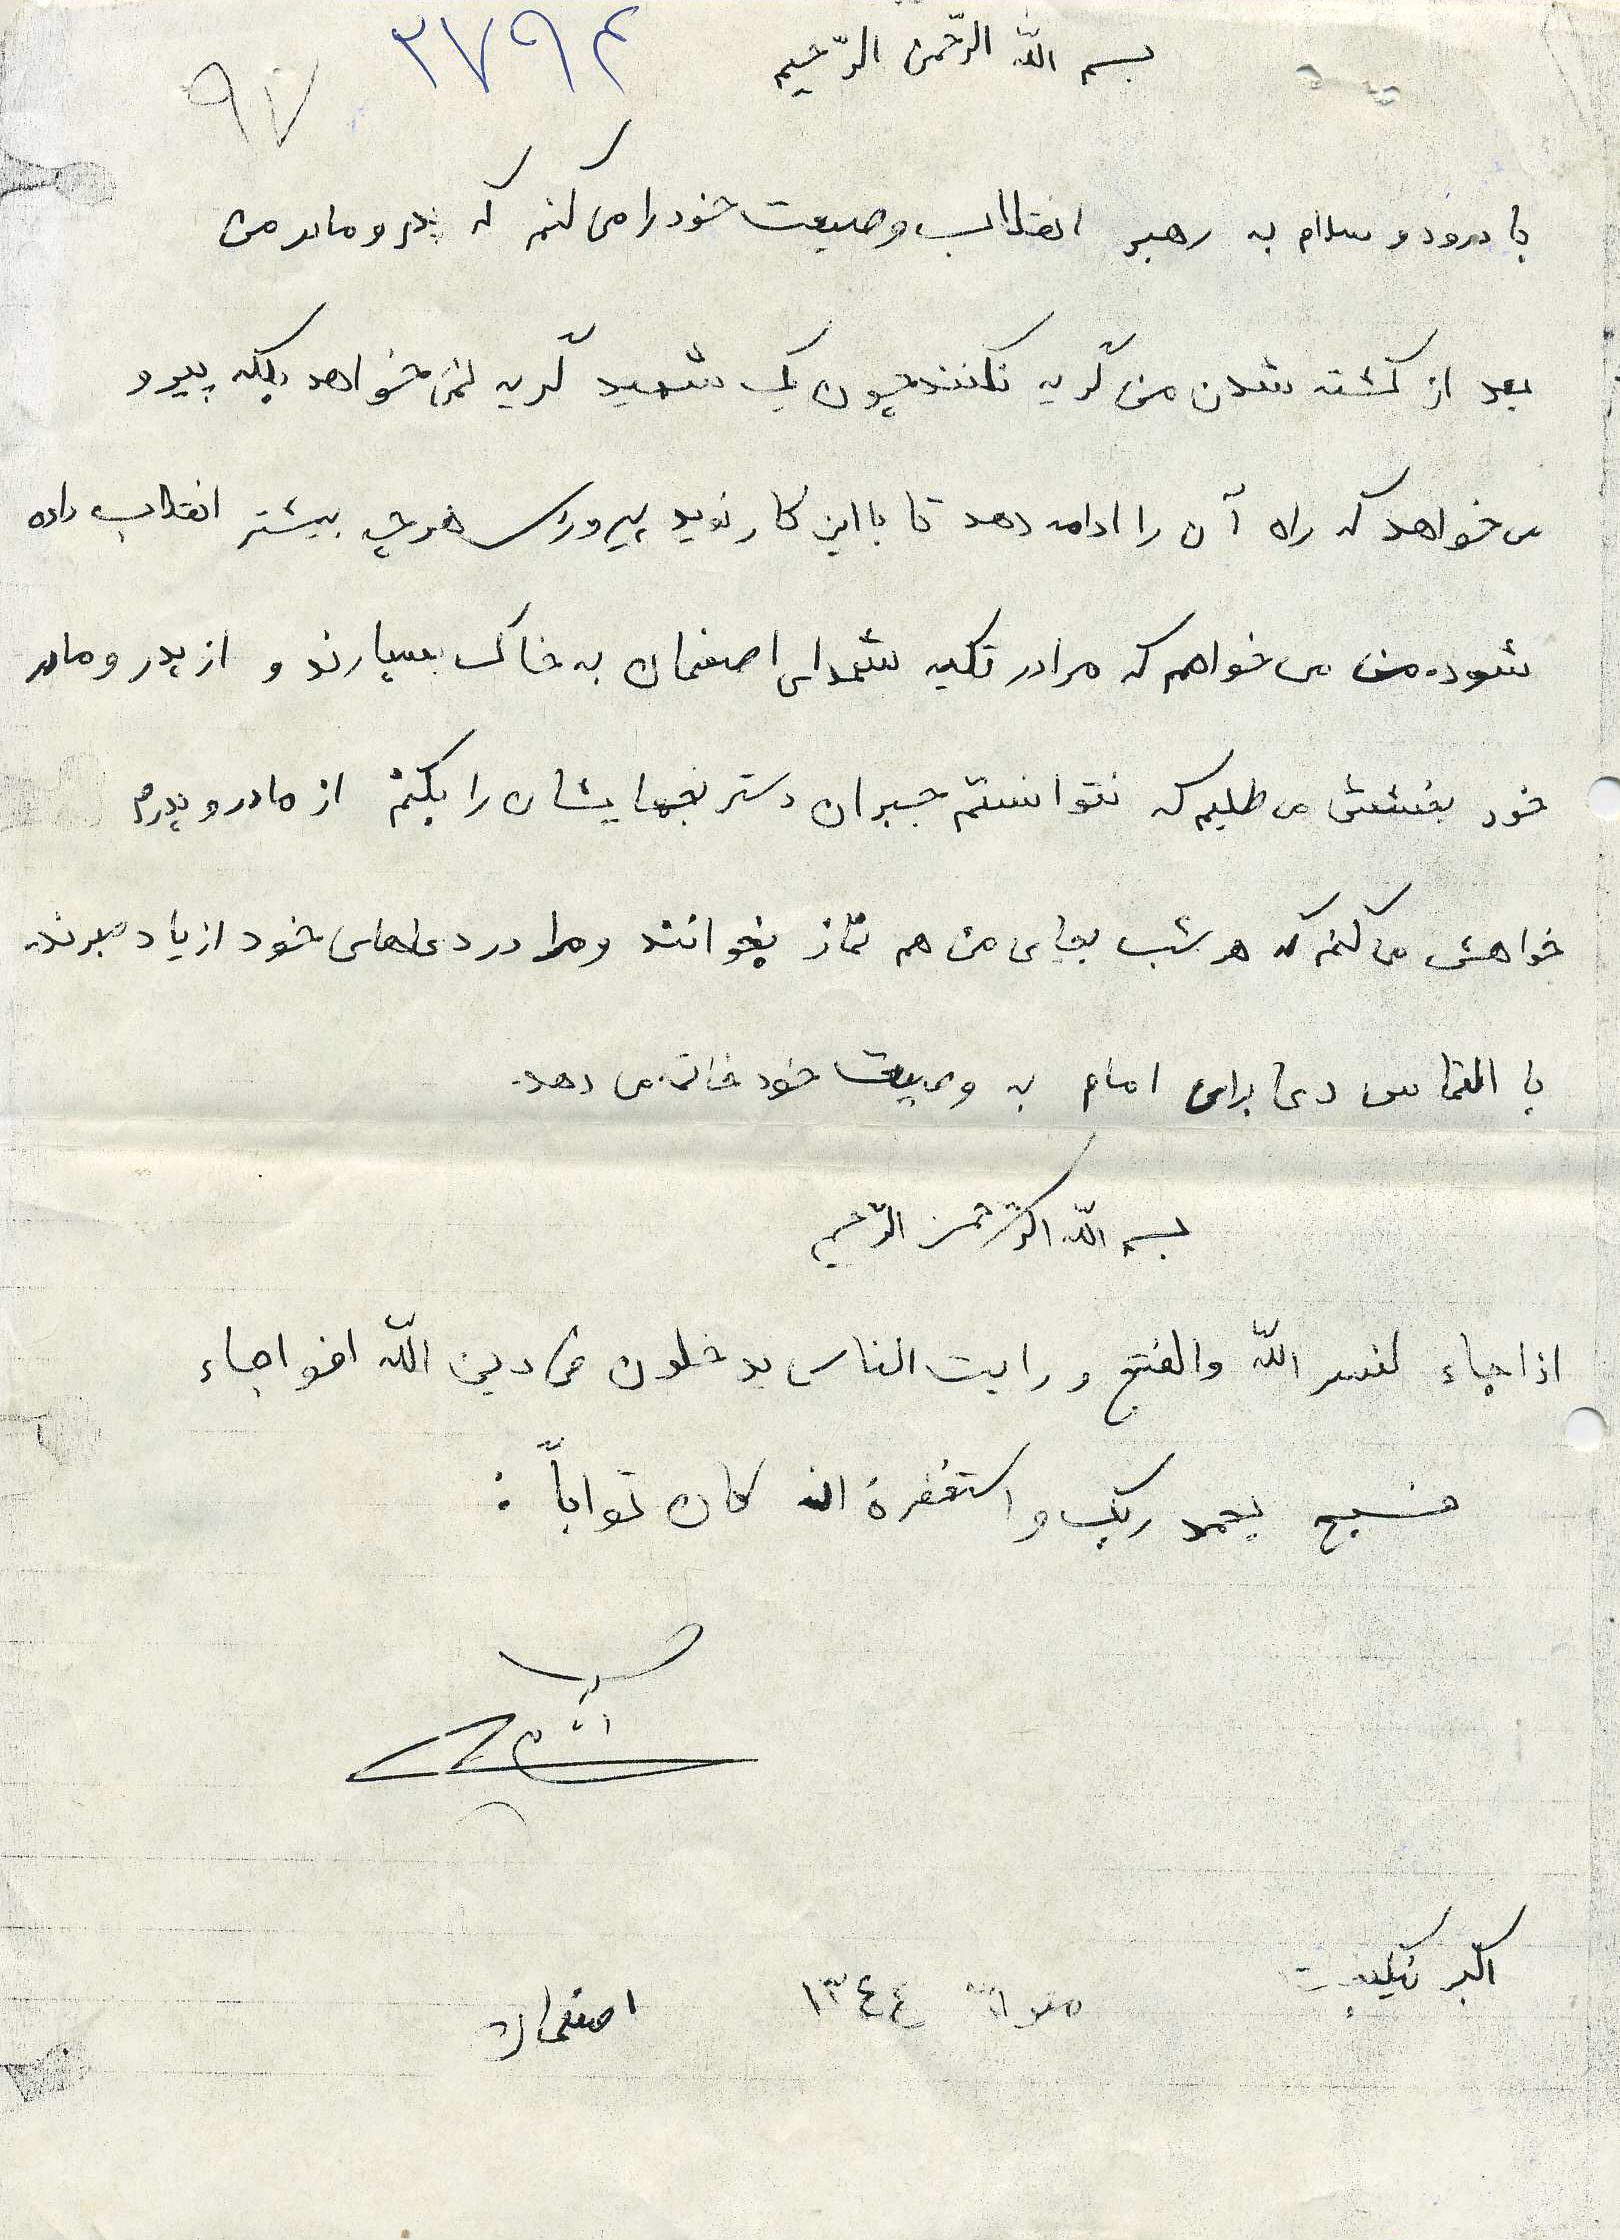 بسم الله الرّحمن الرّحیم
۲۷۹۴
۹۷
با درود و سلام به رهبر انقلاب وصیعت خود را می کنم که پدر و مادر من
بعد از کشته شدن من گریه نکنند چون یک شهید گریه نمی خواهد بلکه پیرو
می خواهد که راه آن را ادامه دهد تا با این کار نوید پیروزی هرچه بیشتر انقلاب داده
شود. من می خواهم که مرا در تکیه شهدای اصفهان به خاک بسپارند و از پدر و مادر
خود بخشش می طلبم که نتوانستم جبران دسترنجهایشان را بکنم از مادر و پدرم
خواهش می کنم که هر شب بجای من هم نماز بخوانند و مرا در دعاهای خود از یاد مبرند.
با التماس دعا برای امام به وصیعت خود خاتمه می دهد.
بسم الله الرّحمن الرّحیم
اذا جاء نصر اللّه والفتح و رایت الناس یدخلون فی دین اللّه افواجاء
فسبح بحمد ربک و استغفرهُ انه کان تواباً :
اکبر
متولد ۱۳٤٤
اصفهان